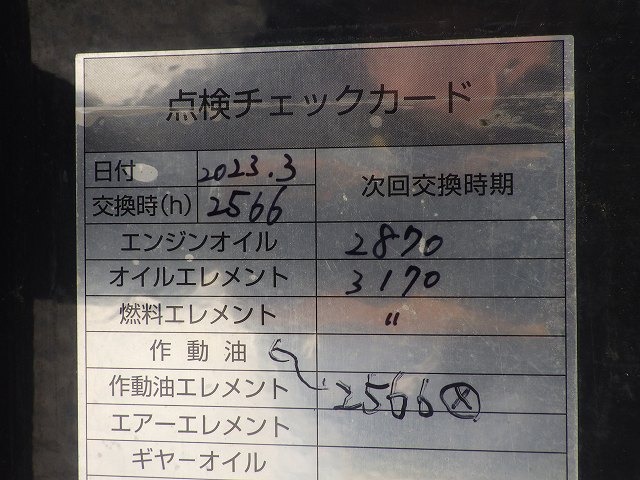 点検チェックカード
日付 2023.3
交換時(h) 2566
次回交換時期
エンジンオイル 2870
オイルエレメント 3170
燃料エレメント 〃
作動油
作動油エレメント 2566ⓧ
エアーエレメント
ギヤーオイル